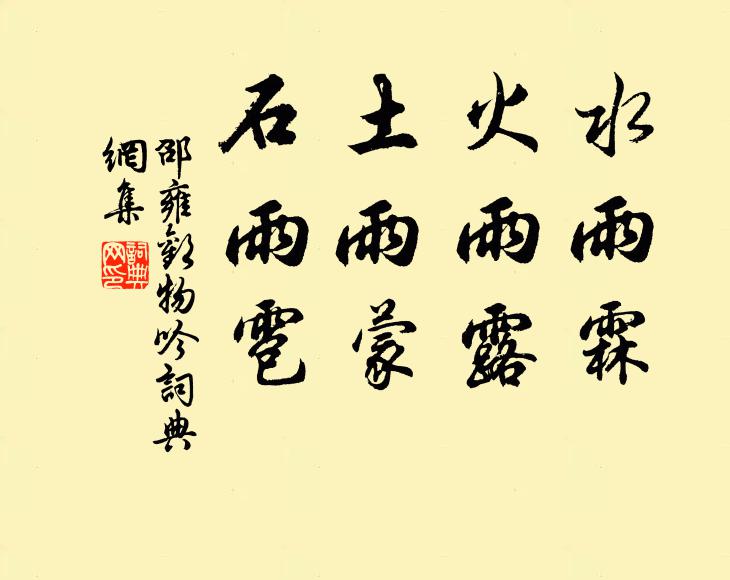 水雨霖
火雨露
土雨蒙
石雨雹
邵雍觀物吟詞典
網集
詞典
网印